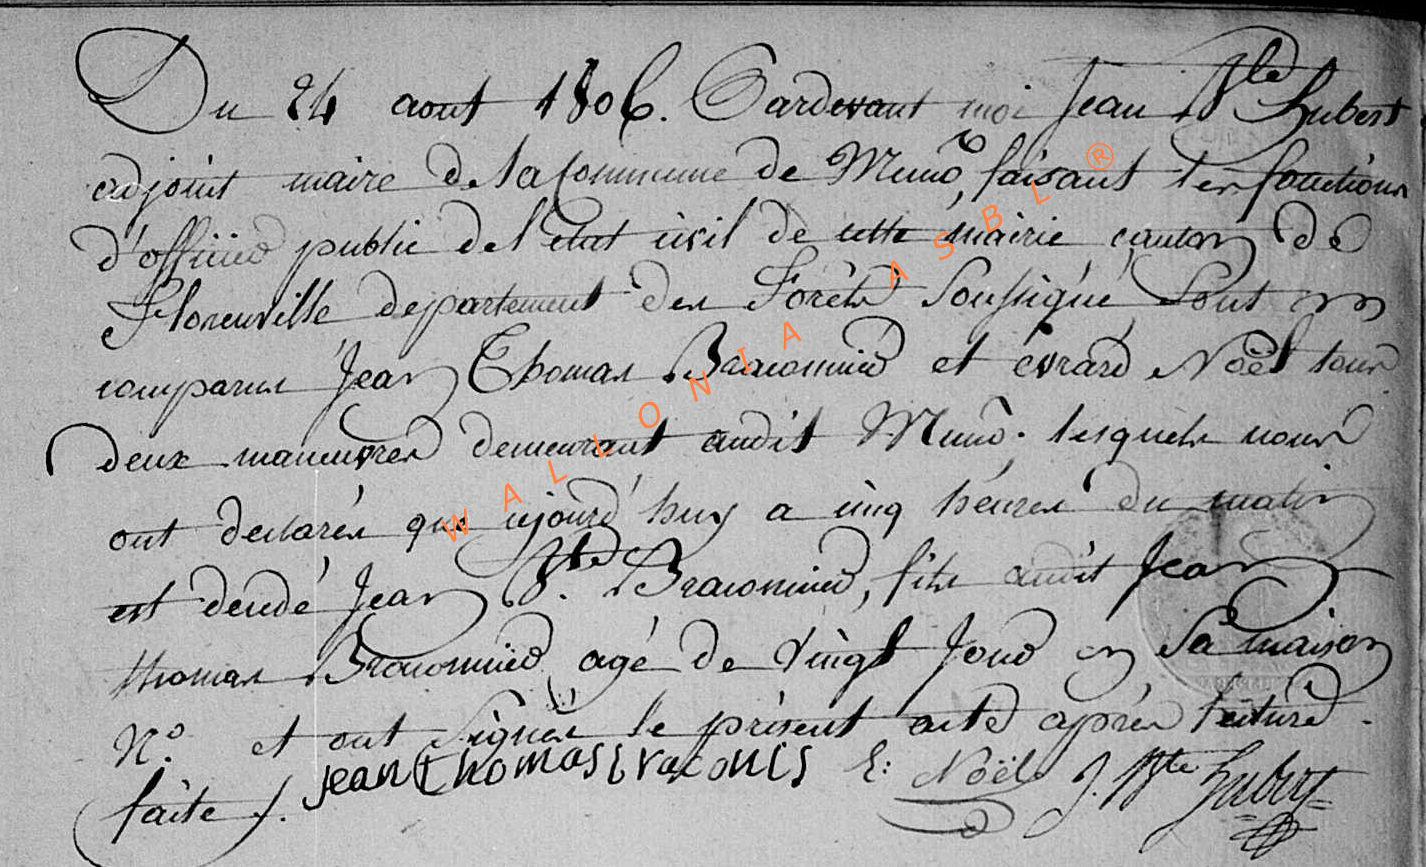 Du 24 aout 1806. Pardevant moi Jean Bte hubert
adjoint maire de la Commune de Muno, faisant les fonctions
d'officier public de l'etat civil de cette mairie canton de
Florenville departement des Forêts soussigné sont
comparus Jean Thomas Braconnier et évrard Noël tous
deux maneuvres demeurant audit Muno. lesquels nous
ont declarés que ajourd'huy a cinq héures du matin
est decedé Jean Bte Braconnier, fils audit Jean
thomas Braconnier agé de vingt jour en sa maison
N.º et ont signés le présent acte après lecture
faite
jean thomas braconis E: Noël J. Bte hubert
WALLONIA ASBL ®